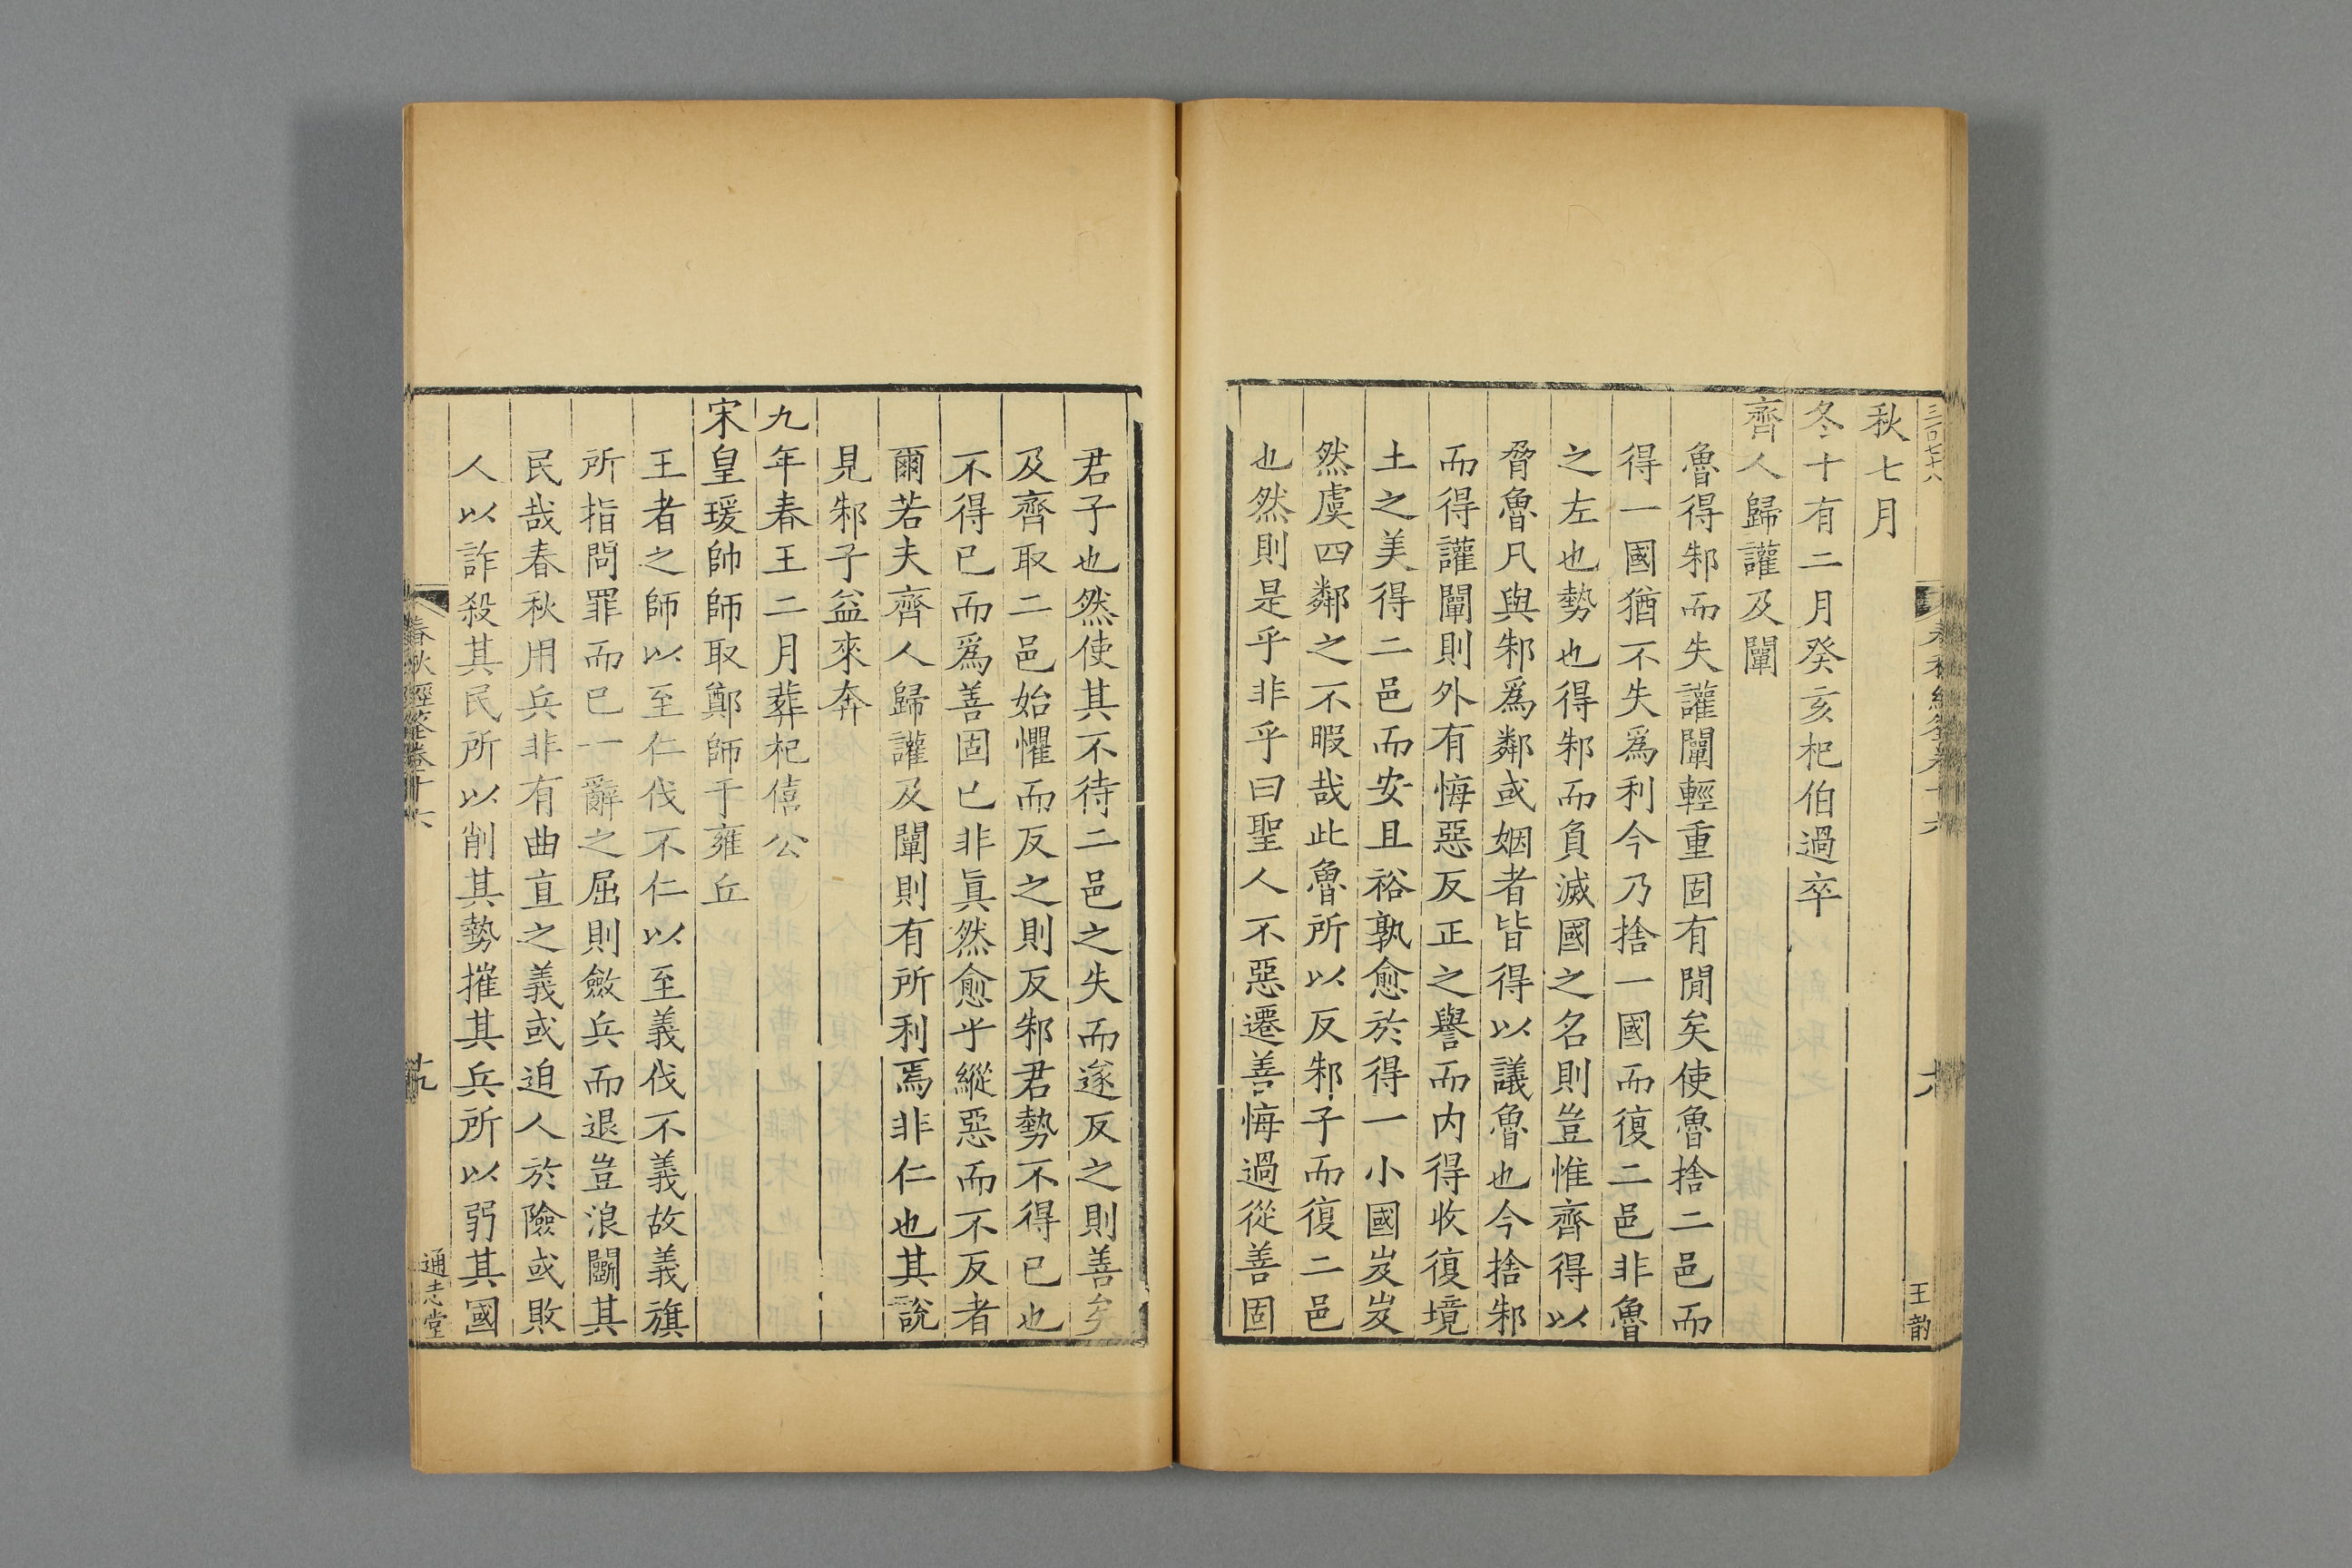 秋七月
冬十有二月癸亥杞伯過卒
齊人歸讙及闡
魯得邾而失讙闡輕重固有閒矣使魯捨二邑而
得一國猶不失爲利今乃捨一國而復二邑非魯
之左也勢也得邾而負滅國之名則豈惟齊得以
脅魯凡與邾爲鄰或姻者皆得以議魯也今捨邾
而得讙闡則外有悔惡反正之譽而内得收復境
土之美得二邑而安且裕孰愈於得一小國岌岌
然虞四鄰之不暇哉此魯所以反邾子而復二邑
也然則是乎非乎曰聖人不惡遷善悔過從善固
王韵
君子也然使其不待二邑之失而遂反之則善矣
及齊取二邑始懼而反之則反邾君勢不得已也
不得已而爲善固已非眞然愈乎縱惡而不反者
爾若夫齊人歸讙及闡則有所利焉非仁也其說
見邾子益來奔
九年春王二月葬杞僖公
宋皇瑗帥師取鄭師于雍丘
王者之師以至仁伐不仁以至義伐不義故義旗
所指問罪而已一辭之屈則斂兵而退豈浪鬬其
民哉春秋用兵非有曲直之義或迫人於險或敗
人以詐殺其民所以削其勢摧其兵所以弱其國
春秋經筌卷十六
十九
通志堂